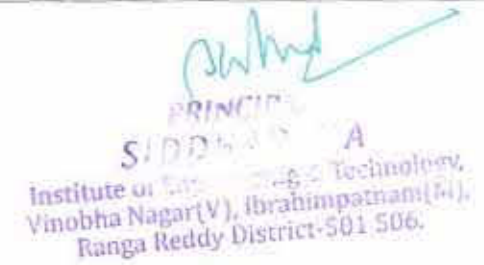 PRINCIP
SIDD A
Institute of Technology,
Vinobha Nagar(V), Ibrahimpatnam(M),
Ranga Reddy District-501 506.